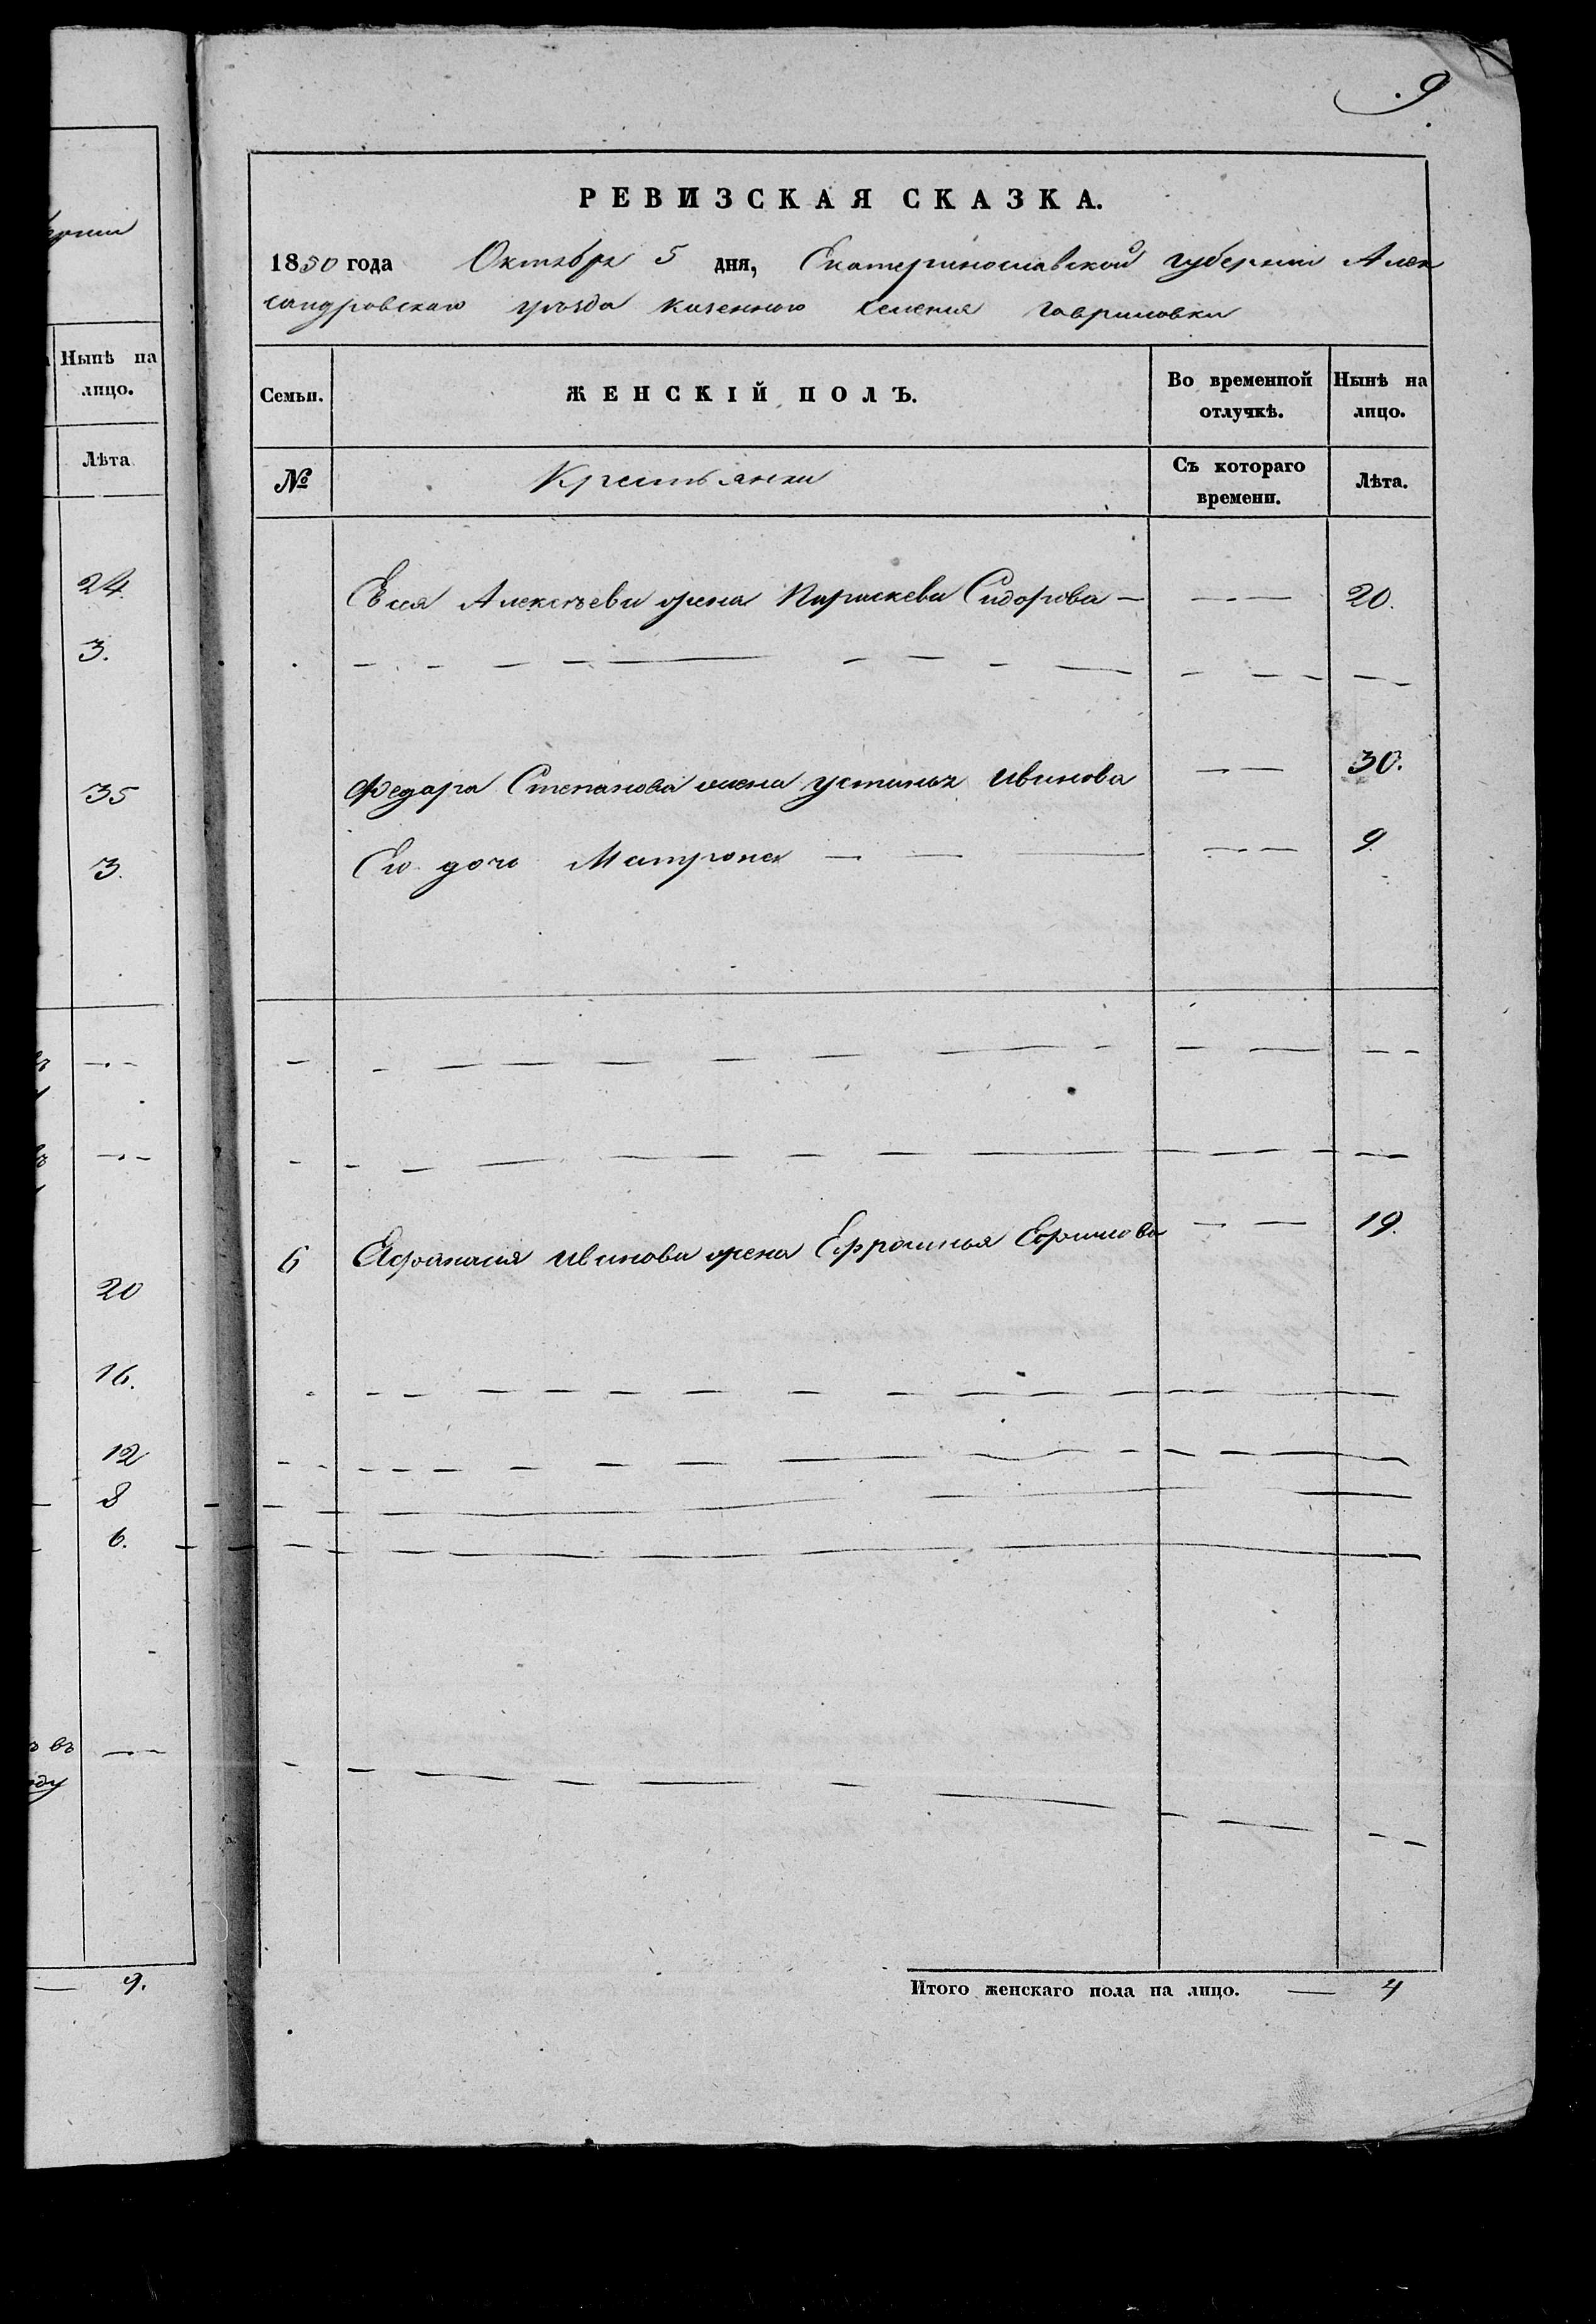 9
РЕВИЗСКАЯ СКАЗКА.
1850 года Октября 5 дня, Екатеринославской губернии Алек
сандровскаго уѣзда казеннаго селения Гавриловки
Семьи. ЖЕНСКІЙ ПОЛЪ. Во временной отлучкѣ. Нынѣ на лицо.
№ Крестьянки Съ котораго времени. Лѣта.
Алексѣева жена Параскева Сидорова — — — 20.
Федара Степанова жена устинья Иванова — — 30.
Его дочь Матрона — — — — — 9
6 Афанасия Иванова жена Ефросинья Ефимова — — 19.
Итого женскаго пола на лицо. — 4
Нынѣ на
лицо.
Лѣта
24.
3.
35
3.
20
16.
12
8
6.
въ
оду
— 9.